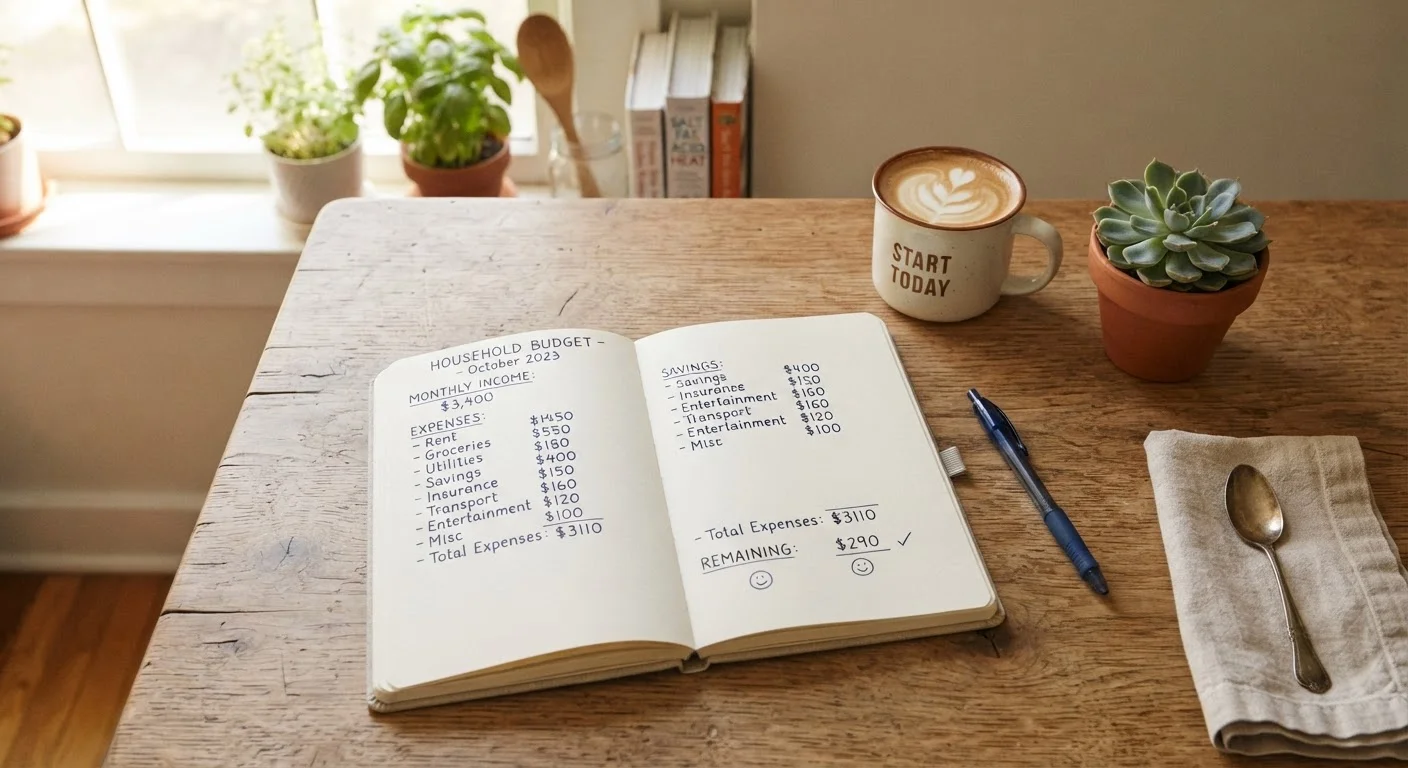 HOUSEHOLD BUDGET –
– October 2023
MONTHLY INCOME:
$3,400
EXPENSES:
– Rent $1450
– Groceries $550
– Utilities $180
– Savings $400
– Insurance $150
– Transport $160
– Entertainment $120
– Misc $100
– Total Expenses: $3110
SAVINGS:
– Savings $400
– Insurance $150
– Entertainment $160
– Transport $160
– Entertainment $120
– Misc $100
– Total Expenses: $3110
REMAINING: $290 ✓
☺ ☺
START
TODAY
SALT
ACID
HEAT